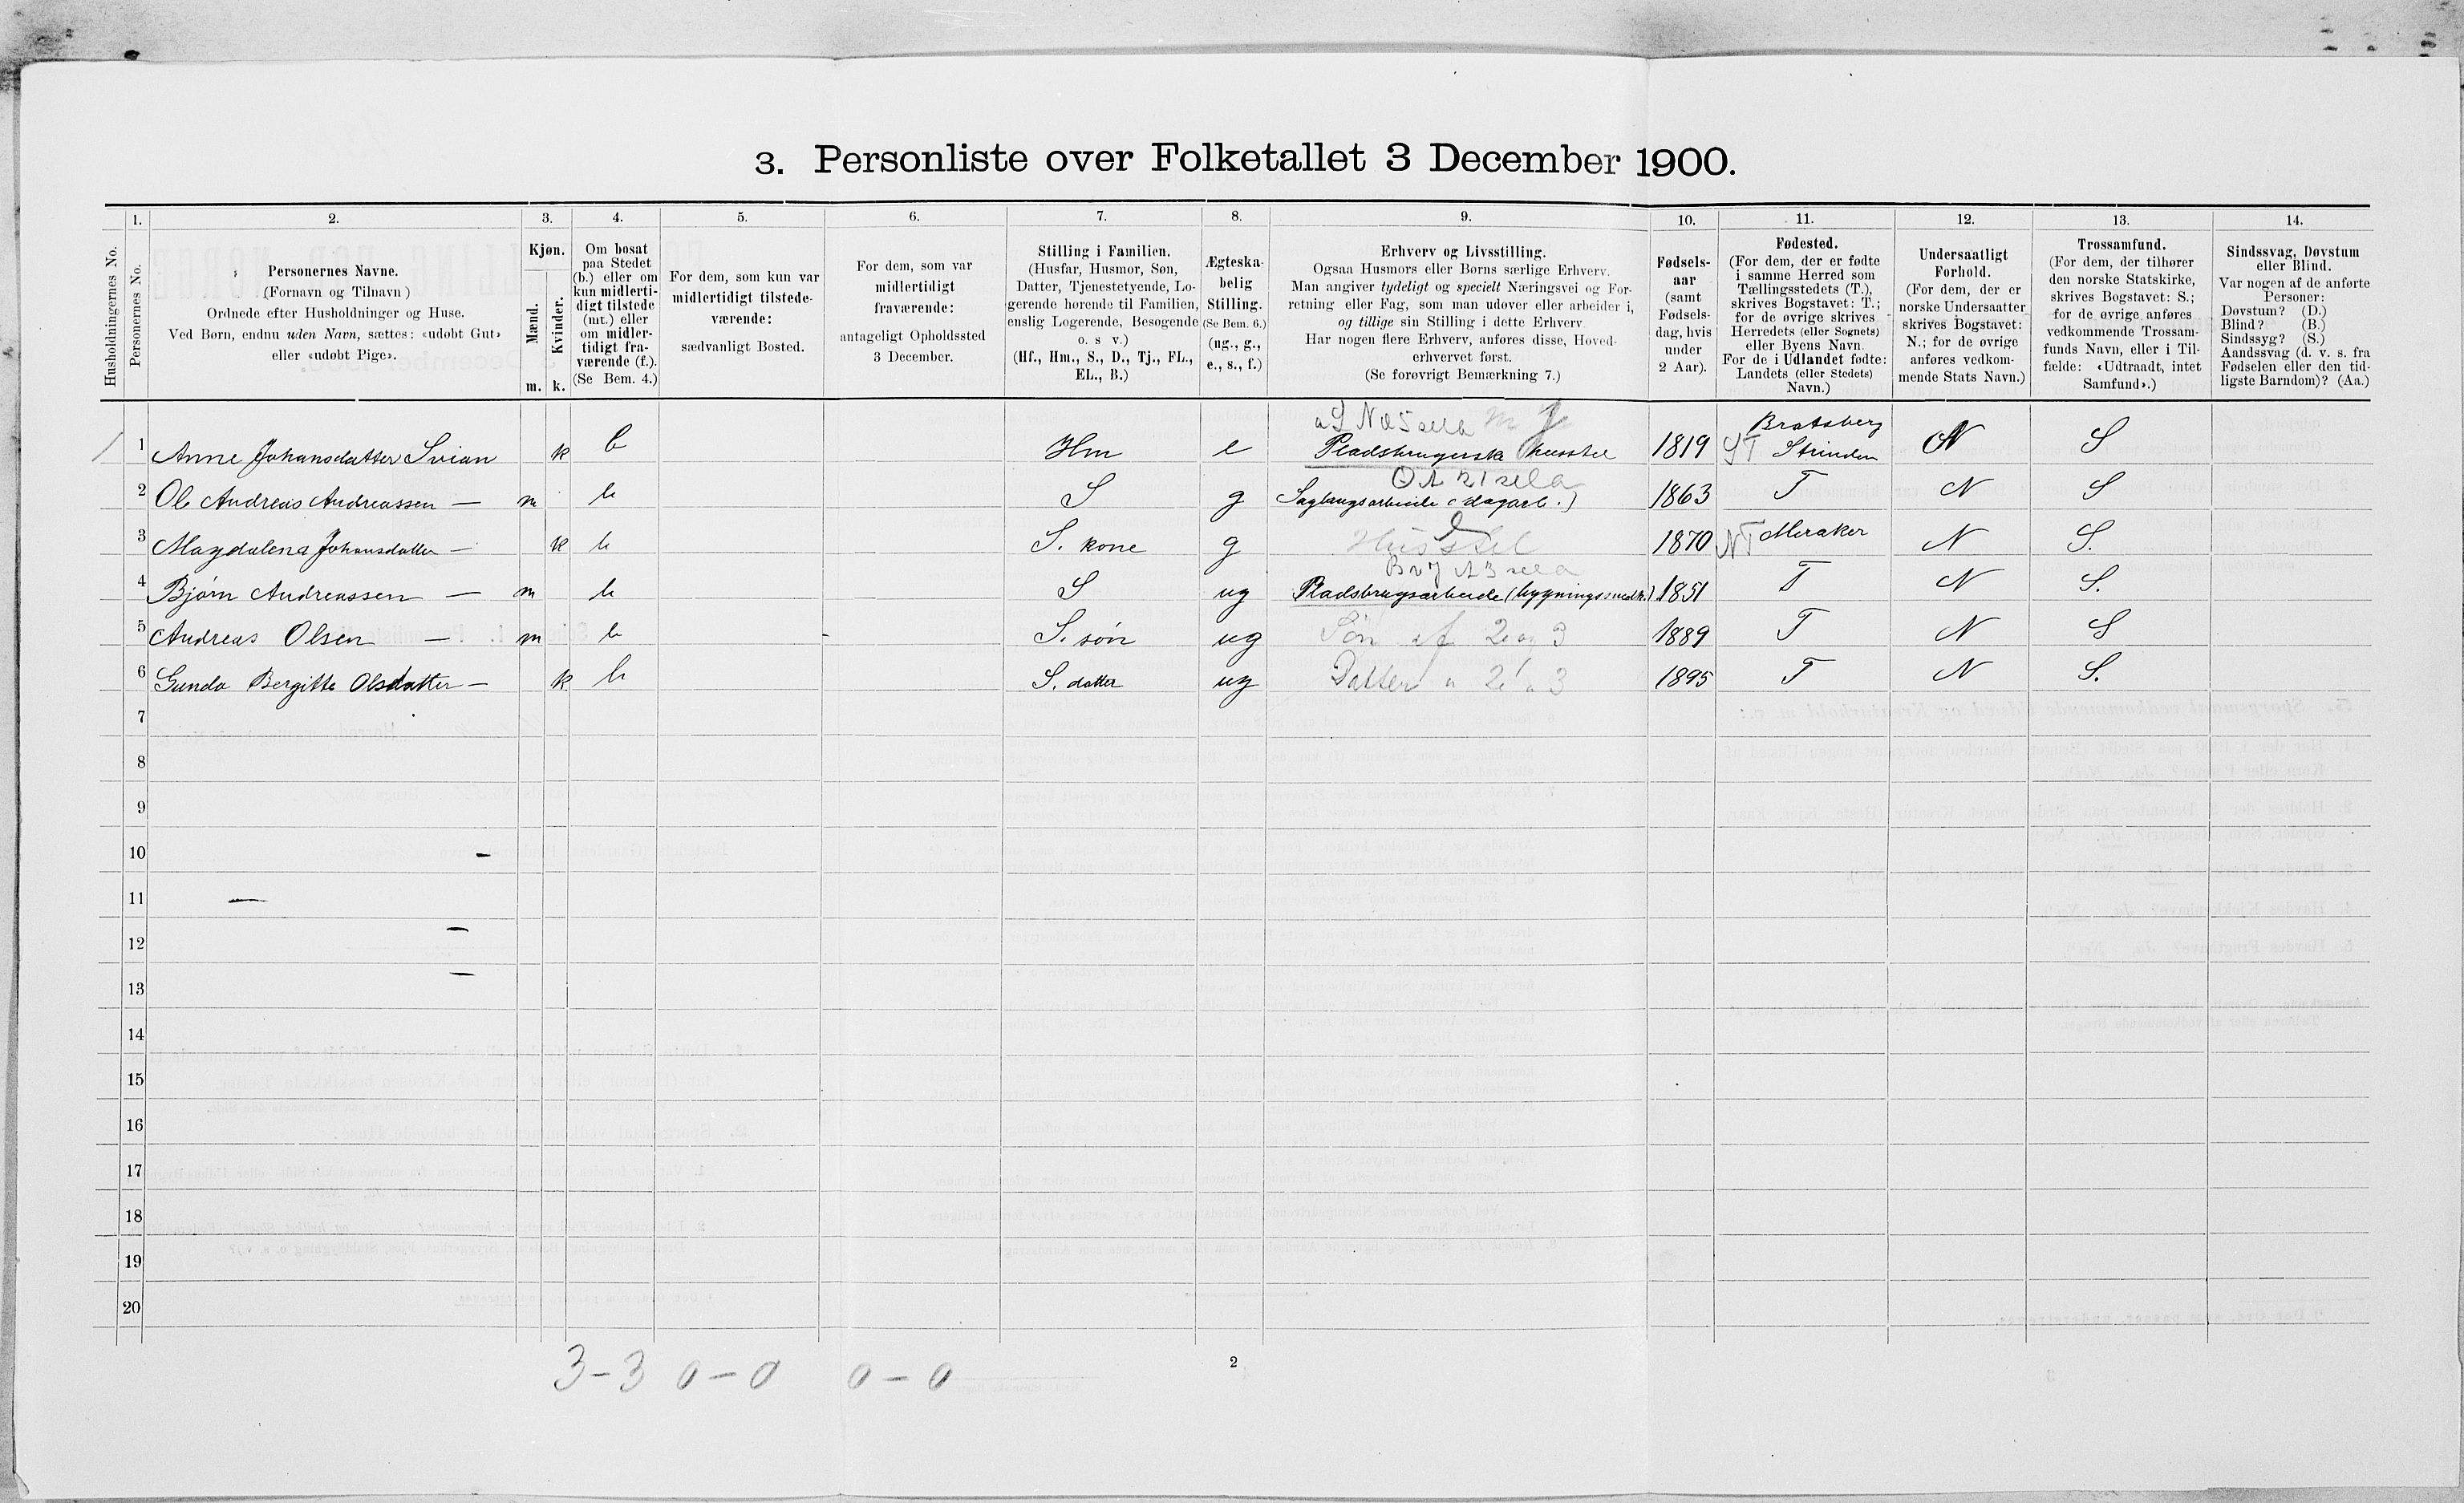 3. Personliste over Folketallet 3 December 1900.
1. 2. 3. 4. 5. 6. 7. 8. 9. 10. 11. 12. 13. 14.
Husholdningernes No.
Personernes No.
Personernes Navne.
(Fornavn og Tilnavn)
Ordnede efter Husholdninger og Huse.
Ved Børn, endnu uden Navn, sættes: «udøbt Gut»
eller «udøbt Pige».
Kjøn.
Mænd.
Kvinder.
m. k.
Om bosat
paa Stedet
(b.) eller om
kun midlerti-
digt tilstede
(mt.) eller
om midler-
tidigt fra-
værende (f.).
(Se Bem. 4.)
For dem, som kun var
midlertidigt tilstede-
værende:
sædvanligt Bosted.
For dem, som var
midlertidigt
fraværende:
antageligt Opholdssted
3 December.
Stilling i Familien.
(Husfar, Husmor, Søn,
Datter, Tjenestetyende, Lo-
gerende hørende til Familien,
enslig Logerende, Besøgende
o. s v.)
(Hf., Hm., S., D., Tj., FL.,
EL., B.)
Ægteska-
belig
Stilling.
(Se Bem. 6.)
(ug., g.,
e., s., f.)
Erhverv og Livsstilling.
Ogsaa Husmors eller Børns særlige Erhverv.
Man angiver tydeligt og specielt Næringsvei og For-
retning eller Fag, som man udøver eller arbeider i,
og tillige sin Stilling i dette Erhverv
Har nogen flere Erhverv, anføres disse, Hoved-
erhvervet først.
(Se forøvrigt Bemærkning 7.)
Fødsels-
aar
(samt
Fødsels-
dag, hvis
under
2 Aar).
Fødested.
(For dem, der er fødte
i samme Herred som
Tællingsstedets (T.),
skrives Bogstavet: T.;
for de øvrige skrives
Herredets (eller Sognets)
eller Byens Navn.
For de i Udlandet fødte:
Landets (eller Stedets)
Navn.)
Undersaatligt
Forhold.
(For dem, der er
norske Undersaatter
skrives Bogstavet:
N.; for de øvrige
anføres vedkom-
mende Stats Navn.)
Trossamfund.
(For dem, der tilhører
den norske Statskirke,
skrives Bogstavet: S.;
for de øvrige anføres
vedkommende Trossam-
funds Navn, eller i Til-
fælde: «Udtraadt, intet
Samfund».)
Sindssvag, Døvstum
eller Blind.
Var nogen af de anførte
Personer:
Døvstum? (D.)
Blind? (B.)
Sindssyg? (S.)
Aandssvag (d. v. s. fra
Fødselen eller den tid-
ligste Barndom)? (Aa.)
Bratsberg
1 Anne Johansdatter Svian k b Hm e Pladsbrugerske husstel 1819 ST Strinden N S
2 Ole Andreas Andreassen — m b S g Sagbrugsarbeide (dagarb.) 1863 T N S
3 Magdalena Johansdatter — k b S. kone g Husstel 1870 NT Meraker N S.
4 Bjørn Andreassen — m b S ug Pladsbrugsarbeide (bygningssnedk.) 1851 T N S.
5 Andreas Olsen — m b S. søn ug Søn af 2 og 3 1889 T N S
6 Gunda Bergitte Olsdatter — k b S. datter ug Datter " 2 " 3 1895 T N S.
7
8
9
10
11
12
13
14
15
16
17
18
19
20
3-3 0-0 0-0
2